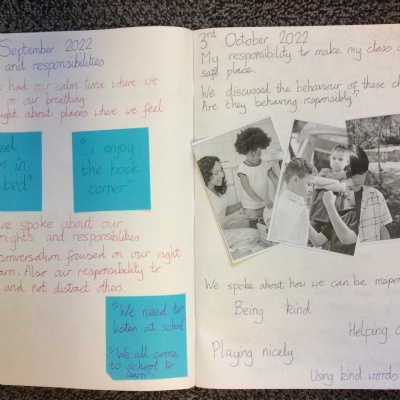 September 2022
and responsibilities
had our calm time where we
on our breathing.
about places where we feel
in
bed"
"I enjoy
the book
corner"
we spoke about our
rights and responsibilities
conversation focused on our right
Also our responsibility to
and not distract others
"We need to
listen at school
"We all come
to school to
learn"
3rd October 2022
My responsibility to make my class a
safe place.
We discussed the behaviour of these
Are they behaving responsibly?
We spoke about how we can be
Being kind
Helping
Playing nicely
Using kind words